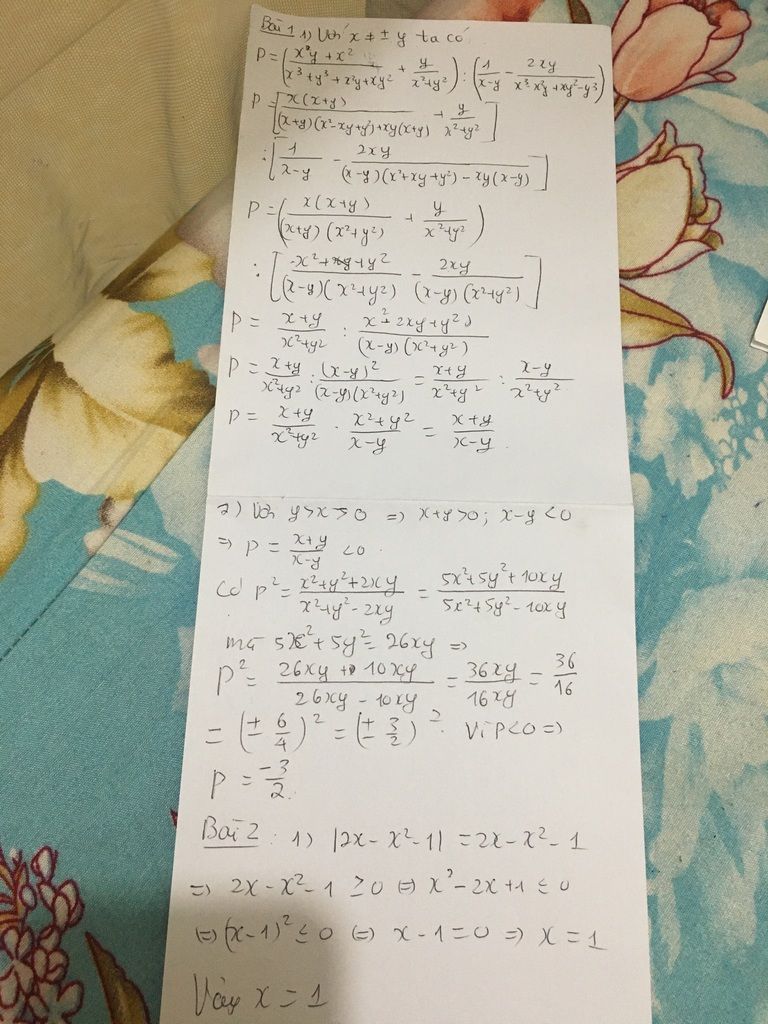 Bài 1 1) Với x ≠ ± y ta có
P = ( (x²y + x²)/(x³ + y³ + x²y + xy²) + y/(x²+y²) ) : ( 1/(x-y) - 2xy/(x³ - x²y + xy² - y³) )
P = [ x(x+y)/((x+y)(x²-xy+y²)+xy(x+y)) + y/(x²+y²) ]
: [ 1/(x-y) - 2xy/((x-y)(x²+xy+y²) - xy(x-y)) ]
P = ( x(x+y)/((x+y)(x²+y²)) + y/(x²+y²) )
: [ (x²+y²)/((x-y)(x²+y²)) - 2xy/((x-y)(x²+y²)) ]
P = (x+y)/(x²+y²) : (x²-2xy+y²)/((x-y)(x²+y²))
P = (x+y)/(x²+y²) : (x-y)²/((x-y)(x²+y²)) = (x+y)/(x²+y²) : (x-y)/(x²+y²)
P = (x+y)/(x²+y²) . (x²+y²)/(x-y) = (x+y)/(x-y).
2) Với y > x > 0 => x+y>0; x-y<0
=> P = (x+y)/(x-y) <0.
Có P² = (x²+y²+2xy)/(x²+y²-2xy) = (5x²+5y²+10xy)/(5x²+5y²-10xy)
mà 5x²+5y² = 26xy =>
P² = (26xy + 10xy)/(26xy - 10xy) = 36xy/16xy = 36/16
= (± 6/4)² = (± 3/2)². Vì P<0 =>
P = -3/2.
Bài 2: 1) |2x - x² - 1| = 2x - x² - 1
=> 2x - x² - 1 ≥ 0 <=> x² - 2x + 1 ≤ 0
<=> (x-1)² ≤ 0 <=> x - 1 = 0 => x = 1
Vậy x = 1